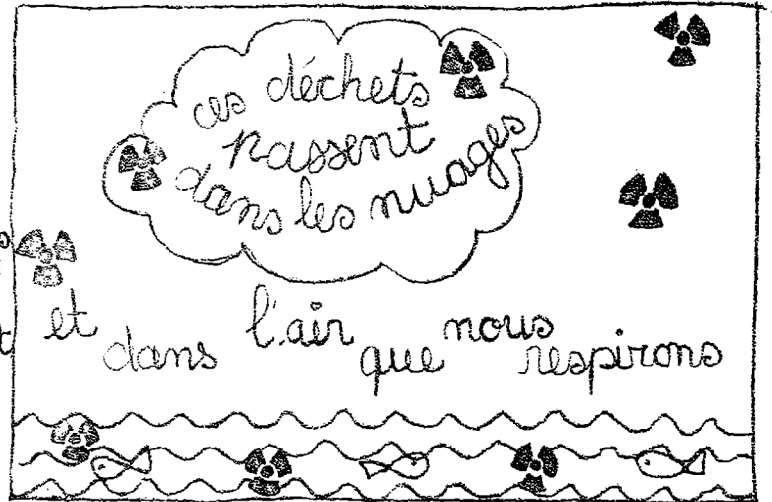 ces déchets
passent
dans les nuages
et dans l'air que nous respirons